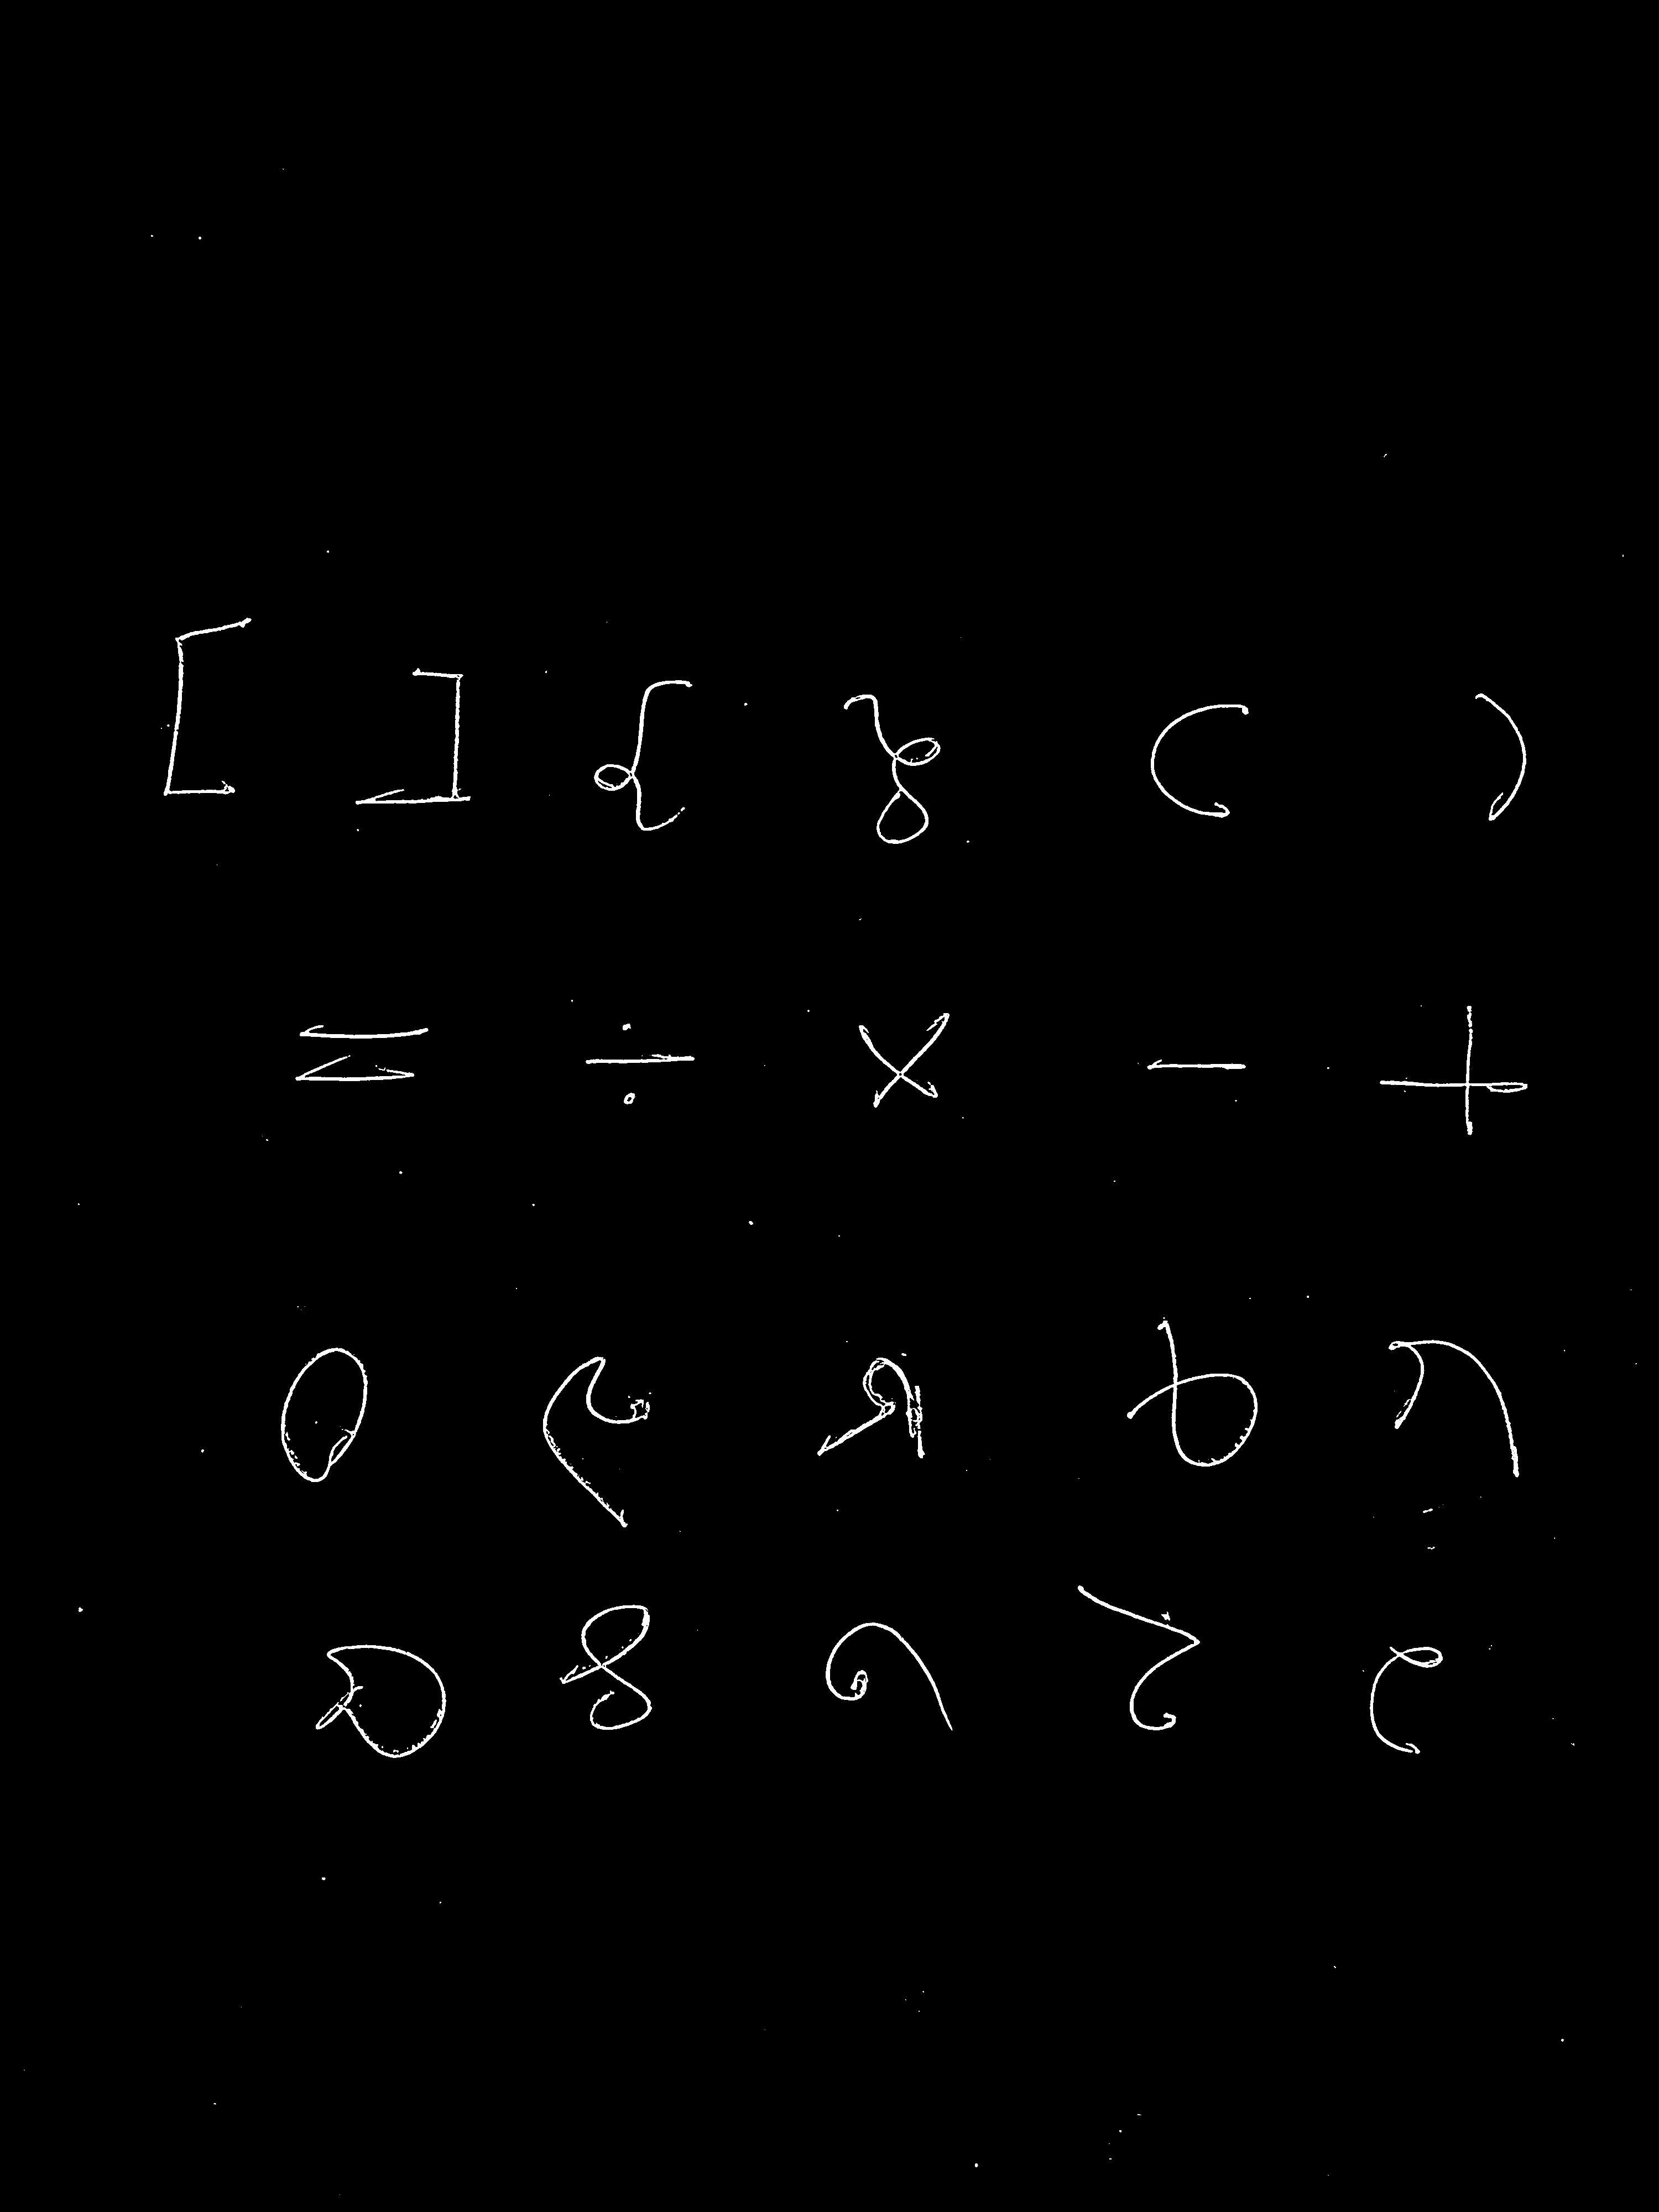 ১ ২ ৩ ৪ ৫
৬ ৭ ৮ ৯ ০
+ - × ÷ =
( ) { } [ ]